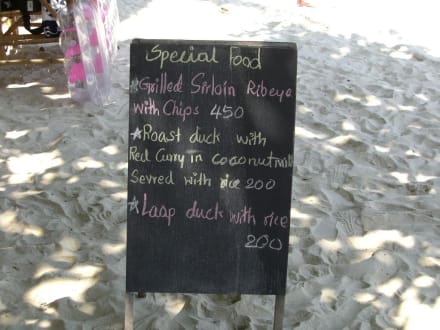 Special Food
★Grilled Sirloin Ribeye
with Chips 450
★Roast duck with
Red Curry in coconutmilk
Sevred with rice 200
★Laap duck with rice
200